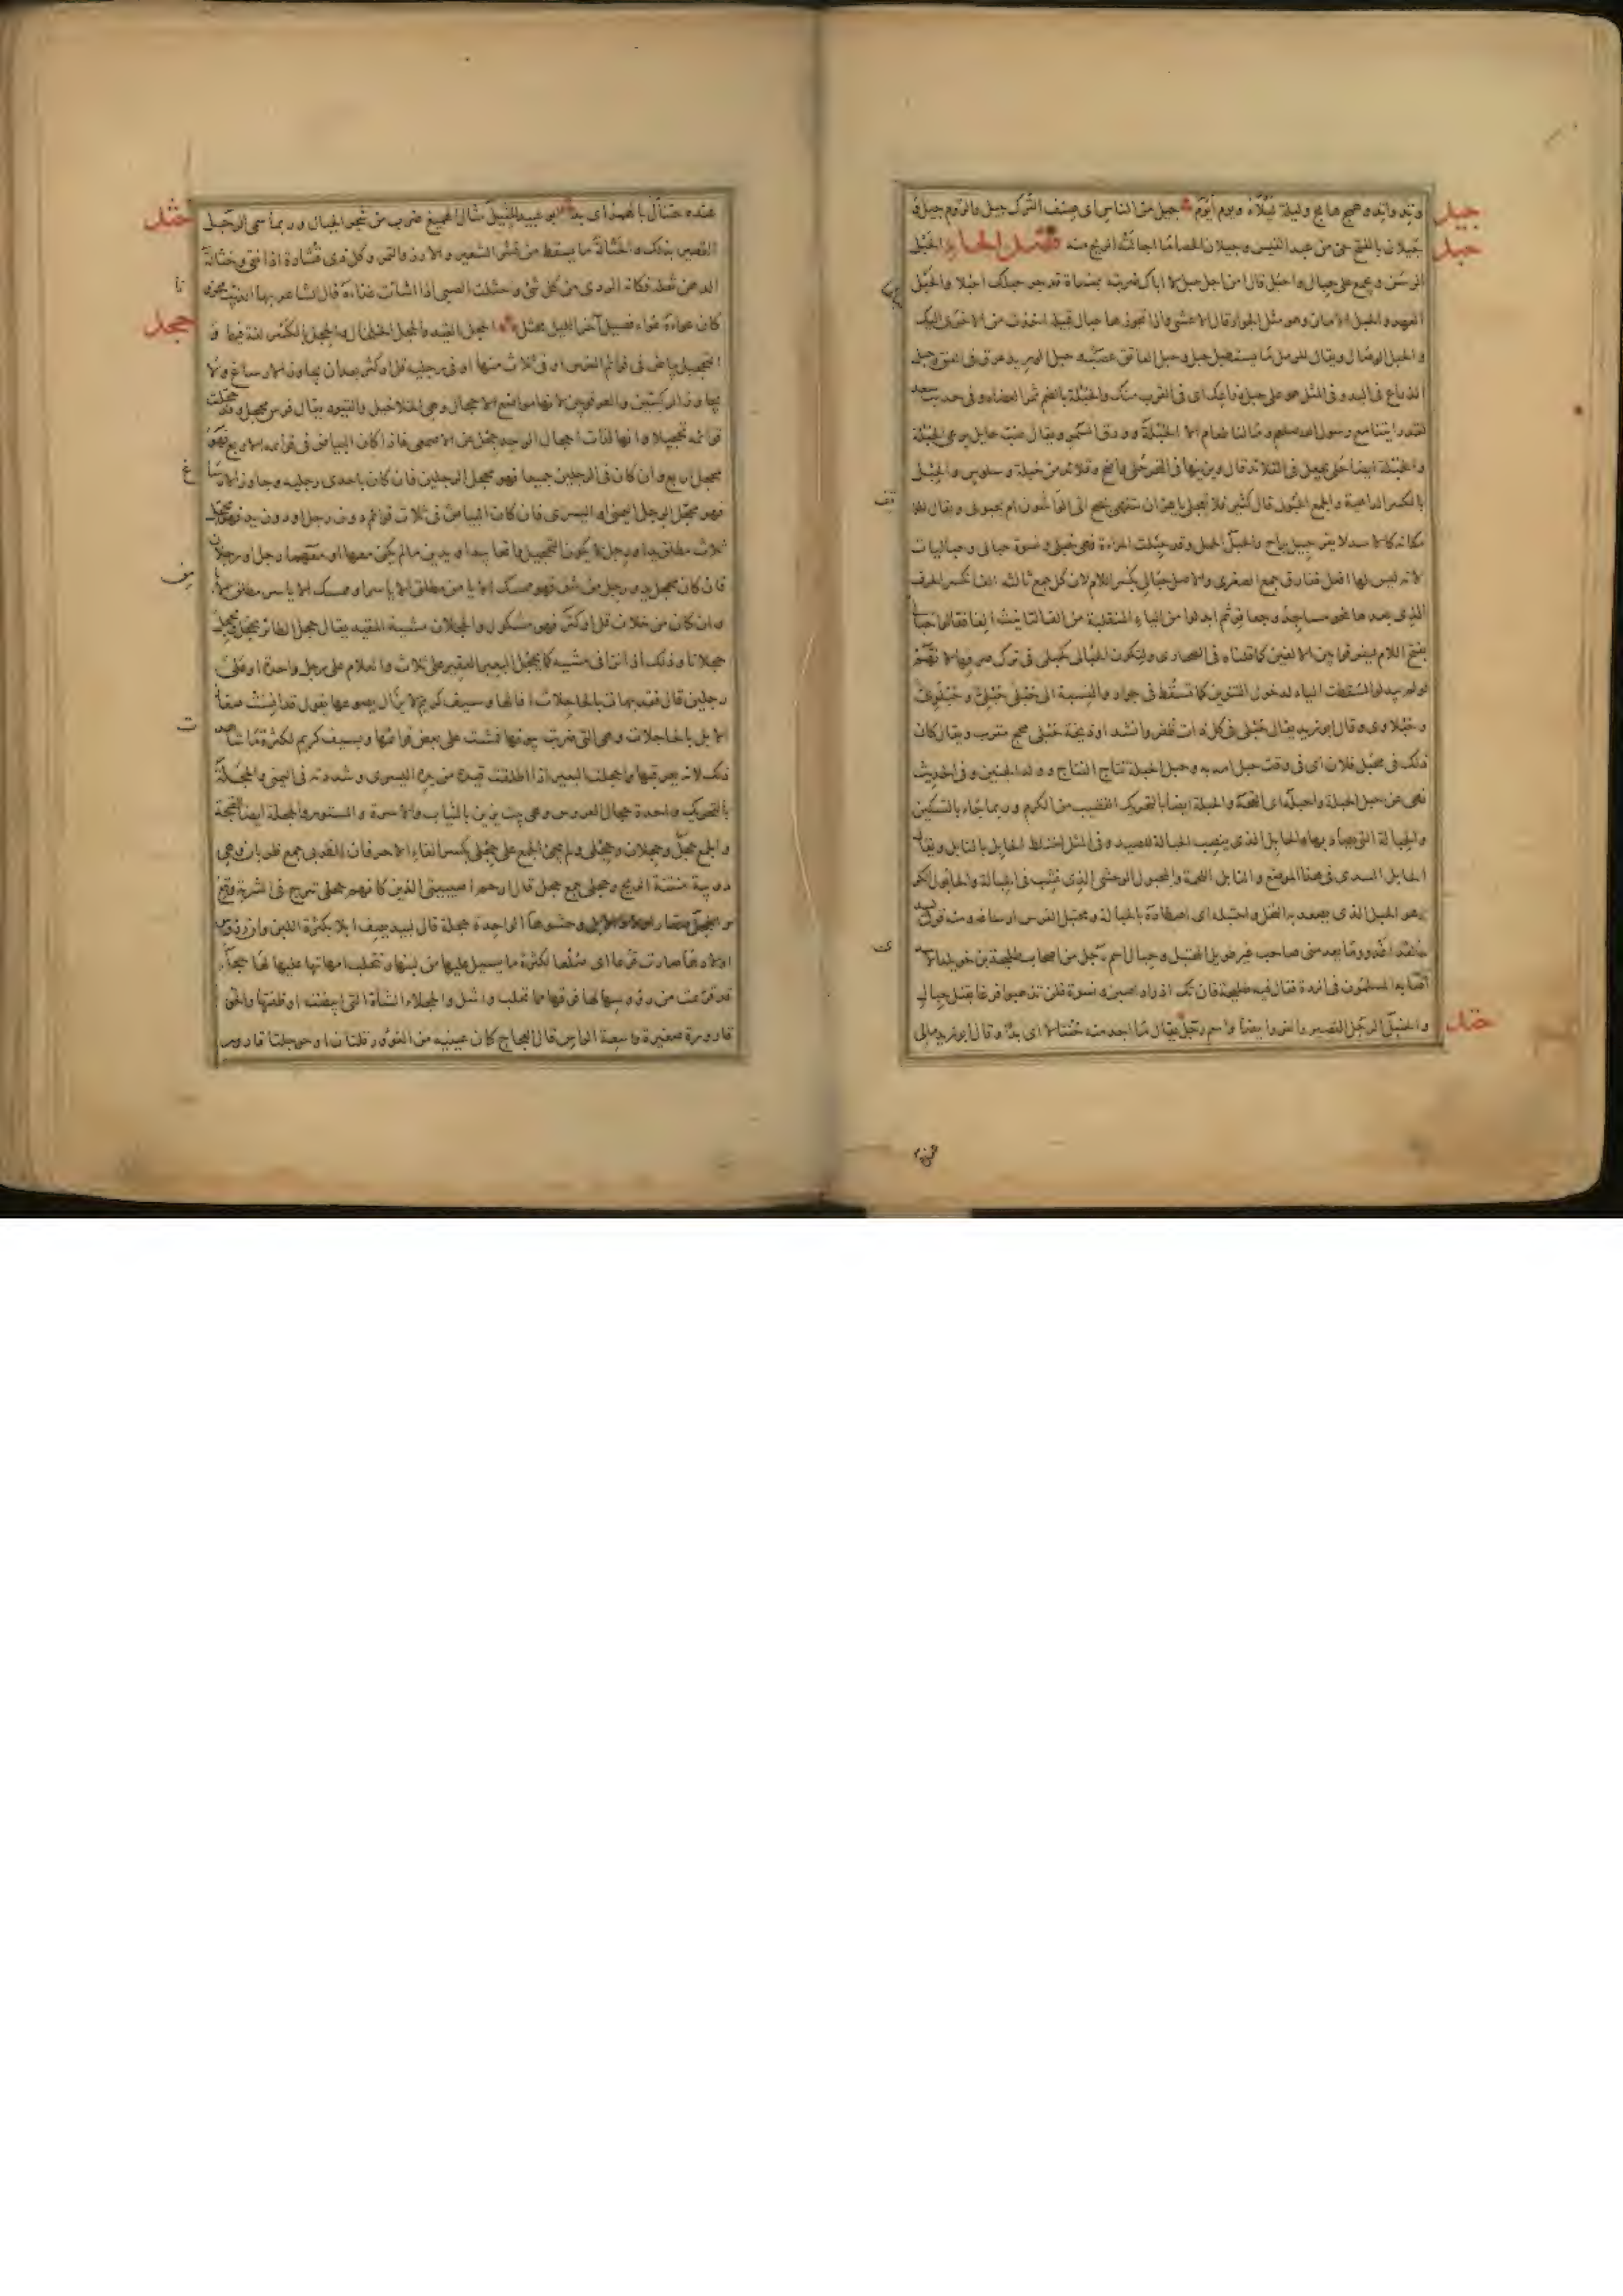 جيل
وتد واتد وهمج هامج وليلة ليلاء ويوم أيوم جيل من الناس اى صنف الترك جيل والروم جيل و
حبل
جيلان بالفتح حى من عبد القيس وجيلان الحصا ما اجالته الريح منه فصل الحاء الحبل
الرسن ويجمع على حبال واحبل قال امن اجل حبل لا اباك ضربته بمنساة قد جر حبلك احبلا والحبل
العهد والحبل الامان وهو مثل الجوار قال الاعشى واذا تجوزها حبال قبيلة اخذت من الاخرى اليك
والحبل الوصال ويقال للرمل يستطيل حبل وحبل العاتق حبل الوريد عرق فى العنق وحبل
الذراع فى اليد وفى المثل هو على حبل ذراعك اى فى القرب منك والحبلة بالضم ثمر العضاه وفى حديث سعد
لقد رايتنا مع رسول الله صلعم وما لنا طعام الا الحبلة وورق السمر ويقال ضب حابل يرعى الحبلة
والحبلة ايضا حلى يجعل فى القلائد قال ويزينها فى النحر حلى واضح وقلائد من حبلة وسلوس والحبل
بالكسر الداهية والجمع الحبول قال كثير فلا تعجلى يا عز ان تتفهمى بنصح اتى الواشون ام بحبول ويقال للواقف
مكانه كالاسد لا يفر حبيل براح والحبل الحمل وقد حبلت المراة فهى حبلى ونسوة حبالى وحباليات
لانه ليس لها افعل ففارق جمع الصغرى والاصل حبالى بكسر اللام لان كل جمع ثالثه الف انكسر الحرف
الذى بعدها نحو مساجد وجعافر ثم ابدلوا من الياء المنقلبة من الف التانيث الفا فقالوا حبالى
بفتح اللام ليفرقوا بين الالفين كما قلناه فى الصحارى وليكون الحبالى كحبلى فى ترك صرفها لانهم
لو لم يبدلوا لسقطت الياء لدخول التنوين كما تسقط فى جوار والنسبة الى حبلى حبلى وحبلوى
وحبلاوى وقال ابو زيد يقال حبلى فى كل ذات ظفر وانشد او ذيخة حبلى مجح مقرب ويقال كان
ذلك فى محبل فلان اى فى وقت حبل امه به وحبل الحبلة نتاج النتاج وولد الجنين وفى الحديث
نهى عن حبل الحبلة والحبلة ايضا بالتحريك القضيب من الكرم وربما جاء بالتسكين
والحبالة التى يصاد بها والحابل الذى ينصب الحبالة للصيد وفى المثل اختلط الحابل بالنابل ويقال
الحابل السدى فى هذا الموضع والنابل اللحمة والمحبول الوحشى الذى نشب فى الحبالة والحابول الكر
وهو الحبل الذى يصعد به النخل واحتبله اى اصطاده بالحبالة ومحتبل الفرس ارساغه ومنه قول لبيد
ولقد اغدو وما يعدمنى صاحب غير طويل المحتبل وحبال اسم رجل من اصحاب طليحة بن خويلد الاسدى
اصابه المسلمون فى الردة فقال فيه طليحة فان تك اذواد اصبن ونسوة فلن تذهبوا فرغا بقتل حبال
حتل
والحنبل الرجل القصير والفرو ايضا واسم رجل يقال ما اجد منه حنتالا اى بدا وقال ابو زيد مالى
حثل
عنده حنتال بالهمز اى بد ابو عبيد الحثيل مثال الهميغ ضرب من شجر الجبال وربما سمى الرجل
القصير بذلك والحثالة ما يسقط من قشر الشعير والارز والتمر وكل ذى قشارة اذا نقى وحثالة
الدهن ثفله فكانه الردى من كل شئ واحثلت الصبى اذا اسات غذاءه قال الشاعر بها الذئب محزونا
حجل
كان عواءه عواء فصيل آخر الليل محثل الحجل القيد والحجل الخلخال والحجل بالكسر لغة فيهما و
التحجيل بياض فى قوائم الفرس او فى ثلاث منها او فى رجليه قل او كثر بعد ان يجاوز الارساغ ولا
يجاوز الركبتين والعرقوبين لانها مواضع الاحجال وهى الخلاخيل والقيود يقال فرس محجل وقد حجلت
قوائمه تحجيلا وانها لذات احجال الواحد حجل عن الاصمعى فاذا كان البياض فى قوائمه الاربع فهو
محجل اربع وان كان فى الرجلين جميعا فهو محجل الرجلين فان كان باحدى رجليه وجاوز الارساغ
فهو محجل الرجل اليمنى او اليسرى فان كان البياض فى ثلاث قوائم دون رجل او دون يد فهو محجل
ثلاث مطلق يد او رجل ولا يكون التحجيل واقعا بيد او يدين ما لم يكن معها او معهما رجل او رجلان
فان كان محجل يد ورجل من شق فهو ممسك الايامن مطلق الاياسر او ممسك الاياسر مطلق الايامن
وان كان من خلاف قل او كثر فهو مشكول والحجلان مشية المقيد يقال حجل الطائر يحجل ويحجل
حجلانا وذلك اذا نزا فى مشيه كما يحجل البعير العقير على ثلاث والغلام على رجل واحدة او على
رجلين قال فقد بهات بالحاجلات افالها وسيف كريم لا يزال يصوعها يقول قد انست صغار
الابل بالحاجلات وهى التى ضربت سوقها فمشت على بعض قوائمها وبسيف كريم لكثرة ما شاهدت
ذلك لانه يعرقبها واحجلت البعير اذا اطلقت قيده من يده اليسرى وشددته فى اليمنى والحجلة
بالتحريك واحدة حجال العروس وهى بيت يزين بالثياب والاسرة والستور والحجلة ايضا القبجة
والجمع حجل وحجلان وحجلى ولم يجئ الجمع على فعلى بكسر الفاء الا حرفان الظربى جمع ظربان وهى
دويبة منتنة الريح وحجلى جمع حجل قال ارحم اصيبيتى الذين كانهم حجلى تدرج فى الشربة وقع
والحجل صغار الابل وحشوها الواحدة حجلة قال لبيد يصف ابلا بكثرة اللبن وان رؤوس
اولادها صارت قرعا اى صلعا لكثرة ما يسيل عليها من لبنها وتتحلب امهاتها عليها لها حجل
قد قرعت من رؤوسها لها فوقها مما تحلب واشل والحجلاء الشاة التى ابيضت اوظفتها والحوجلة
قارورة صغيرة واسعة الراس قال العجاج كان عينيه من الغؤور قلتان او حوجلتا قارور